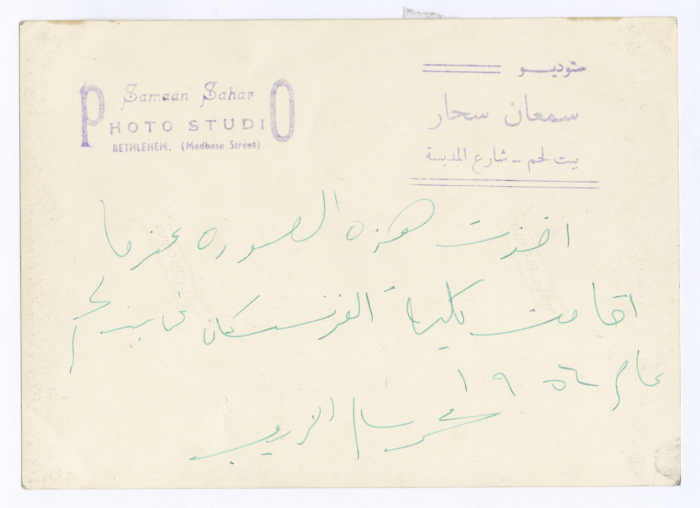 Samaan Sahar
PHOTO STUDIO
BETHLEHEM. (Madbase Street)
ستوديو
سمعان سحار
بيت لحم - شارع المدبسة
اخذت هذه الصوره عندما
اقامت كلية الفرنسسكان في بيت لحم
عام ١٩٥٦